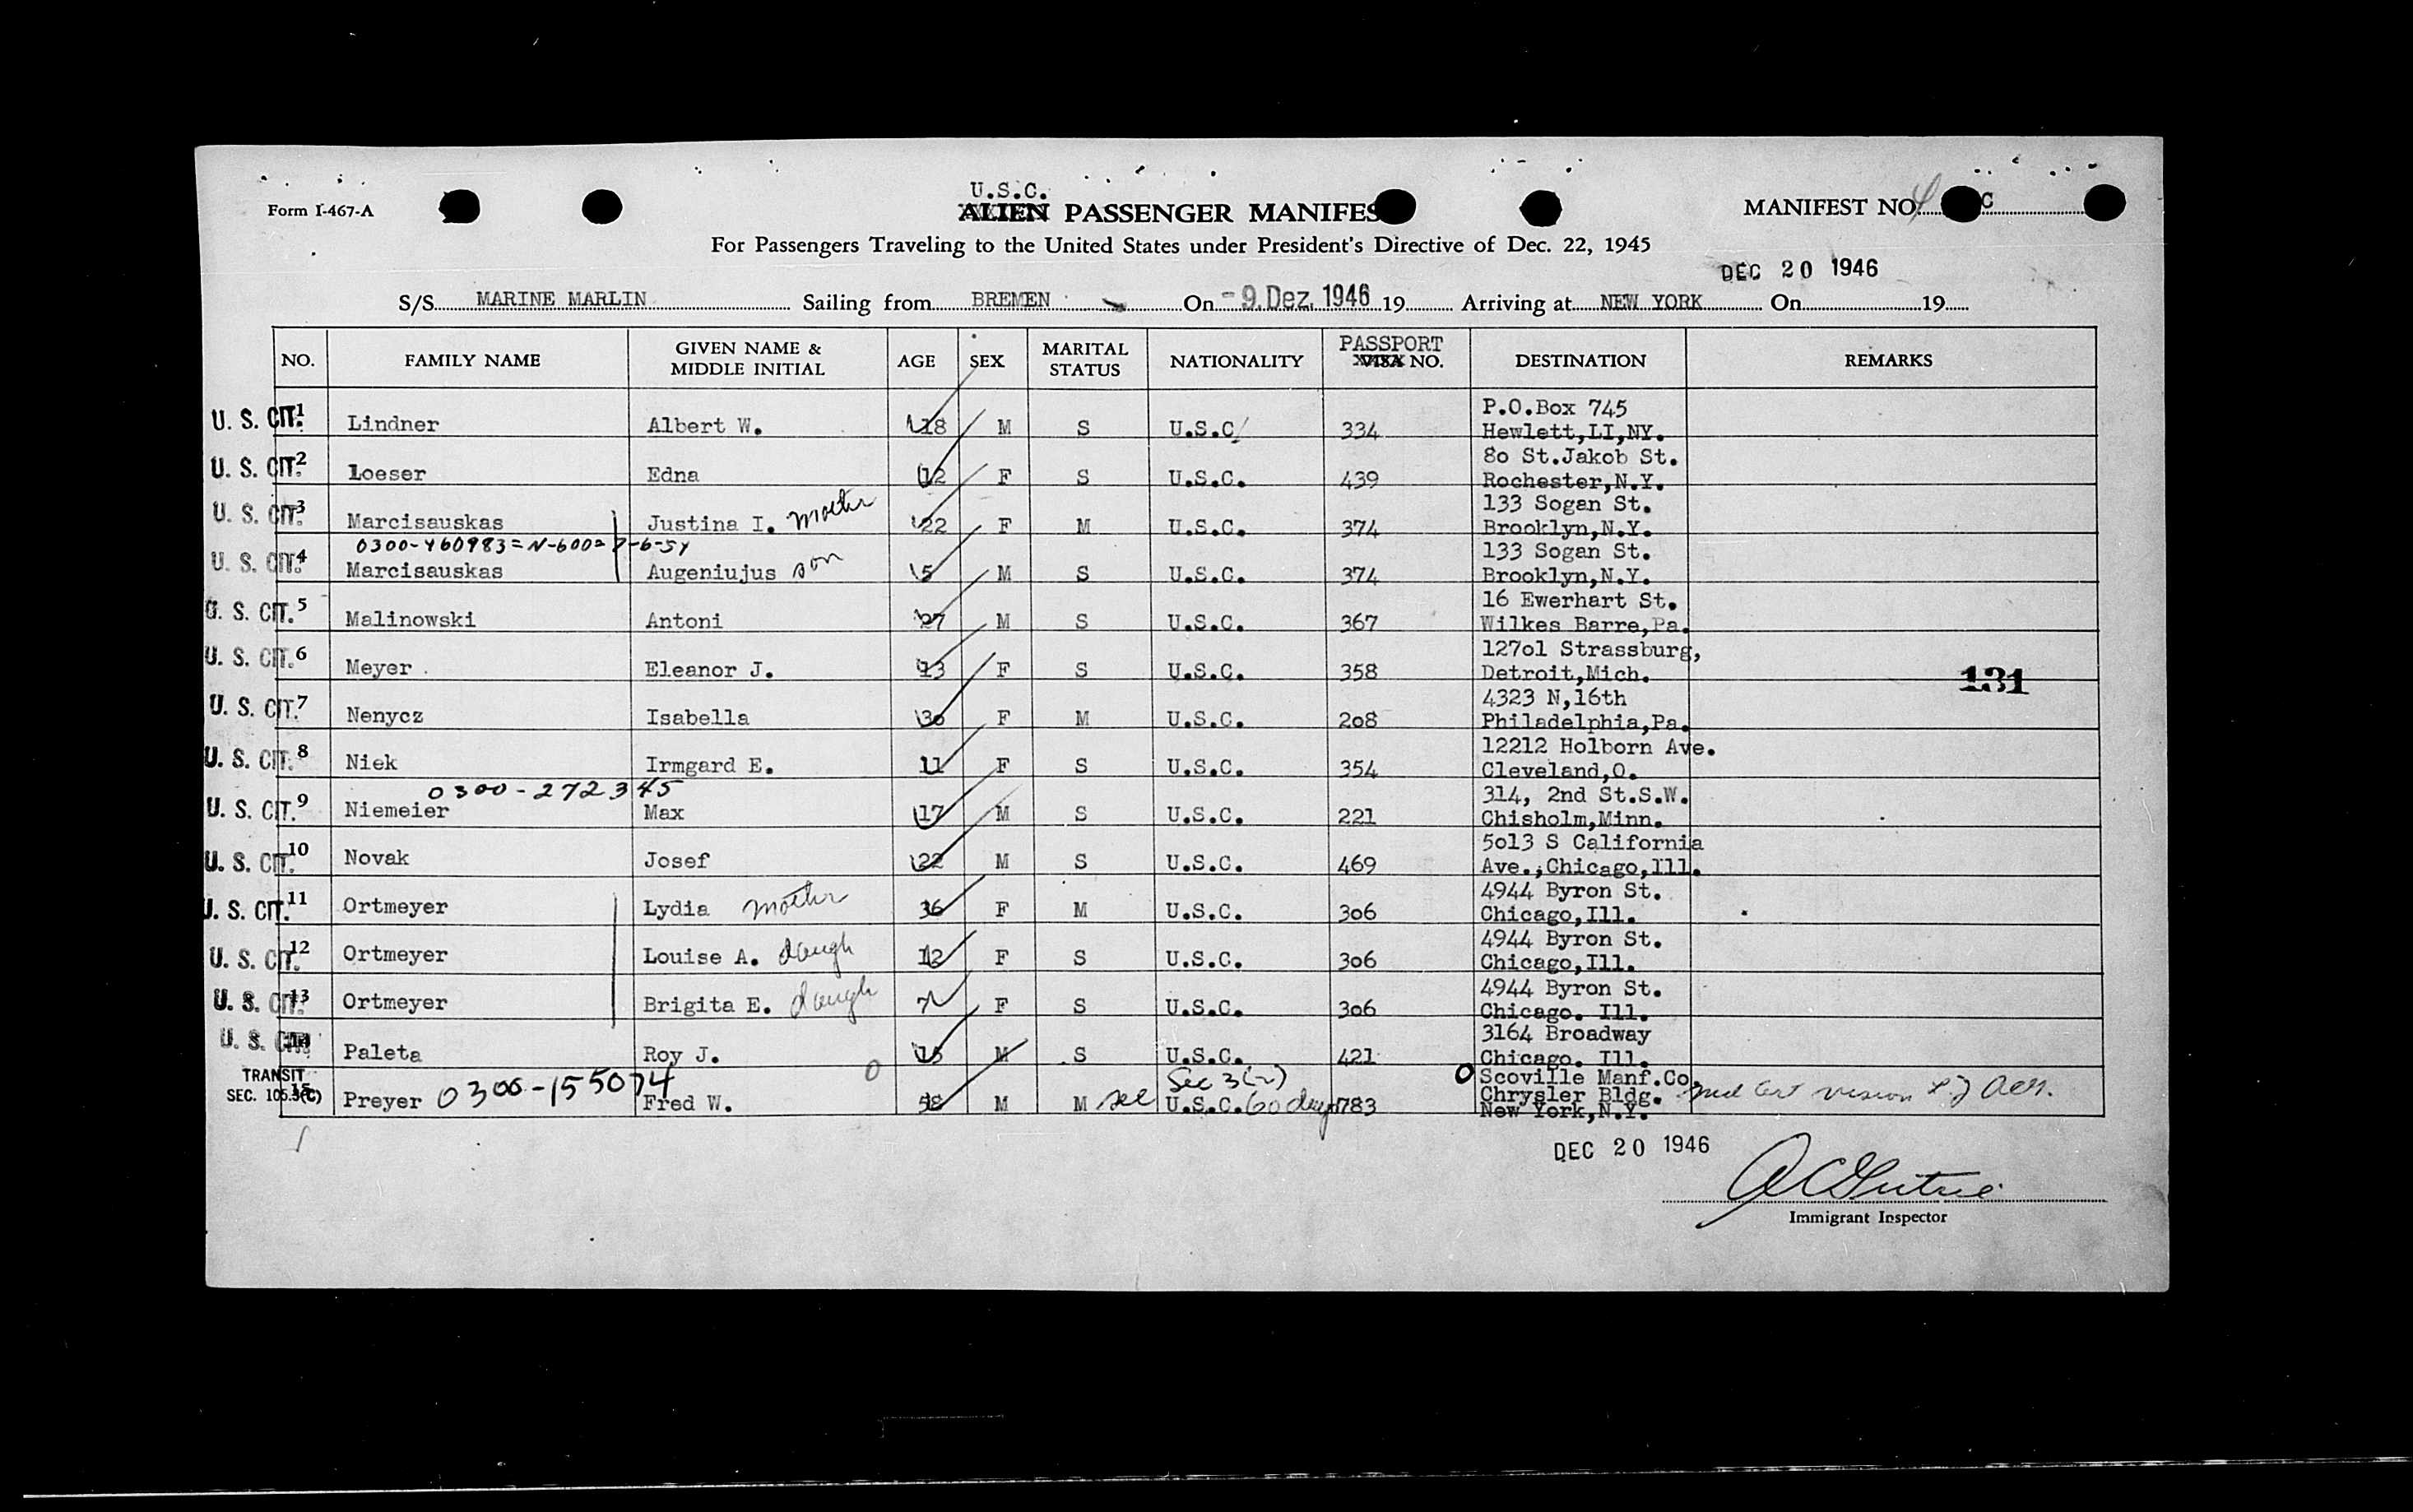 Form I-467-A
U.S.C.
ALIEN PASSENGER MANIFES
MANIFEST NO. C
For Passengers Traveling to the United States under President's Directive of Dec. 22, 1945
DEC 20 1946
S/S MARINE MARLIN Sailing from BREMEN On - 9. Dez. 1946 19 Arriving at NEW YORK On 19
NO. FAMILY NAME GIVEN NAME & MIDDLE INITIAL AGE SEX MARITAL STATUS NATIONALITY PASSPORT VISA NO. DESTINATION REMARKS
U. S. CIT. 1 Lindner Albert W. 18 M S U.S.C 334 P.O.Box 745
Hewlett,LI,NY.
U. S. CIT. 2 Loeser Edna 12 F S U.S.C. 439 80 St.Jakob St.
Rochester,N.Y.
U. S. CIT. 3 Marcisauskas Justina I. mother 22 F M U.S.C. 374 133 Sogan St.
Brooklyn,N.Y.
0300-460983=N-600= 7-6-54
U. S. CIT. 4 Marcisauskas Augeniujus son 5 M S U.S.C. 374 133 Sogan St.
Brooklyn,N.Y.
U. S. CIT. 5 Malinowski Antoni 27 M S U.S.C. 367 16 Ewerhart St.
Wilkes Barre,Pa.
U. S. CIT. 6 Meyer Eleanor J. 13 F S U.S.C. 358 127o1 Strassburg,
Detroit,Mich.
131
U. S. CIT. 7 Nenycz Isabella 3o F M U.S.C. 2o8 4323 N,16th
Philadelphia,Pa.
U. S. CIT. 8 Niek Irmgard E. 11 F S U.S.C. 354 12212 Holborn Ave.
Cleveland,O.
0300-272345
U. S. CIT. 9 Niemeier Max 17 M S U.S.C. 221 314, 2nd St.S.W.
Chisholm,Minn.
U. S. CIT. 10 Novak Josef 22 M S U.S.C. 469 5o13 S California
Ave.,Chicago,Ill.
U. S. CIT. 11 Ortmeyer Lydia mother 36 F M U.S.C. 3o6 4944 Byron St.
Chicago,Ill.
U. S. CIT. 12 Ortmeyer Louise A. daugh 12 F S U.S.C. 3o6 4944 Byron St.
Chicago,Ill.
U. S. CIT. 13 Ortmeyer Brigita E. daugh 7 F S U.S.C. 3o6 4944 Byron St.
Chicago. Ill.
U. S. CIT. 14 Paleta Roy J. 15 M S U.S.C. 421 3164 Broadway
Chicago. Ill.
TRANSIT
SEC. 105.3(C) 15 Preyer 0300-155074 Fred W. 58 M M see Sec 3(2) U.S.C. 60 days 783 Scoville Manf.Co.
Chrysler Bldg.
New York,N.Y.
med Cert vision
DEC 20 1946
Immigrant Inspector